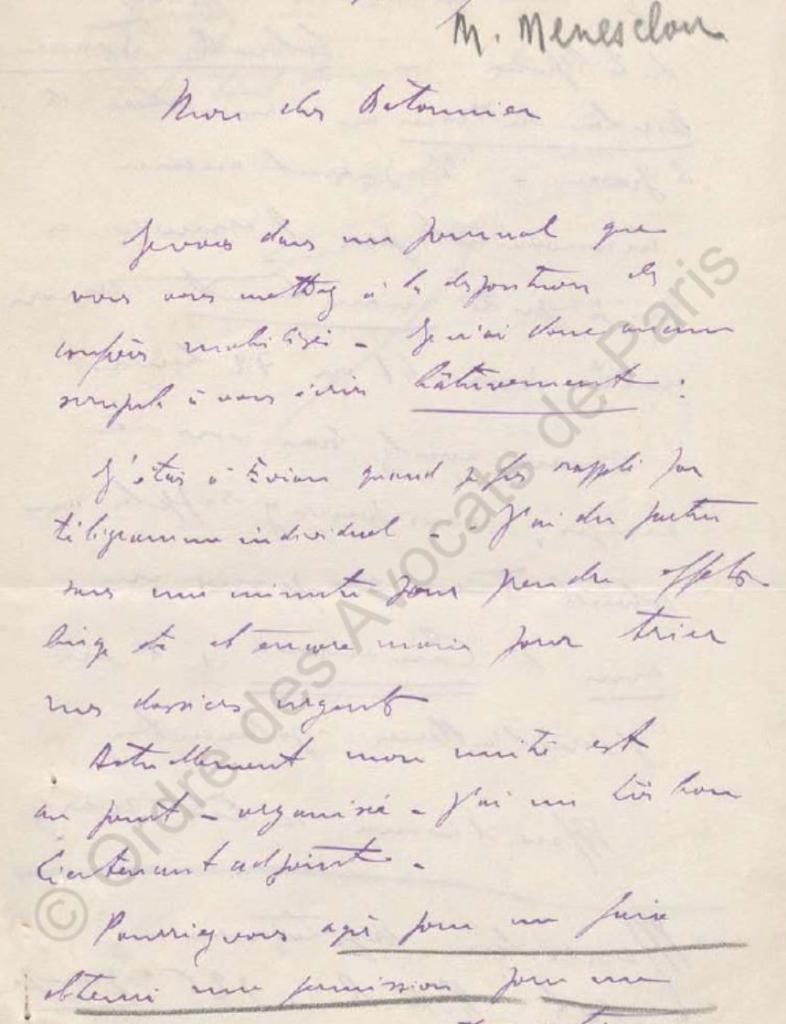 M. Menesclou
Mon cher Bâtonnier
Je vois dans un journal que
vous vous mettez à la disposition des
confrères mobilisés - Je n'ai donc aucun
scrupule à vous écrire hâtivement :
J'étais à Evian quand je fus rappelé par
télégramme individuel - - J'ai dû partir
sans une minute pour prendre effets
linge etc et encore moins pour trier
mes dossiers urgents
Actuellement mon unité est
au point - organisée - J'ai un très bon
lieutenant adjoint -
Pourriez-vous agir pour me faire
obtenir une permission pour me
© Ordre des Avocats de Paris